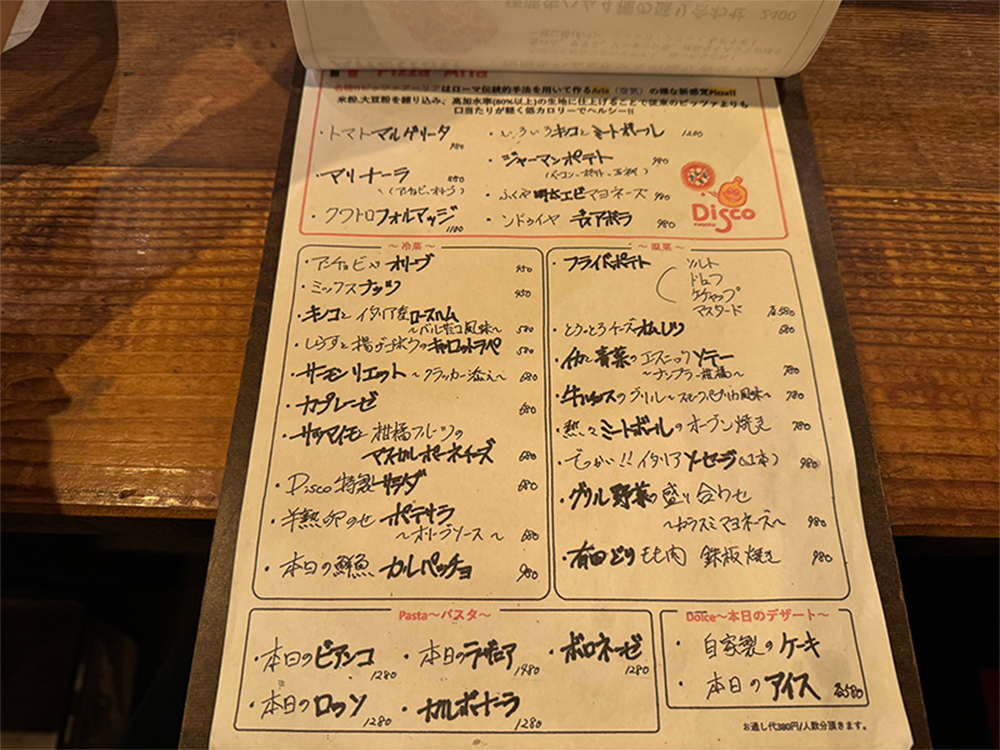 Pizza Aria
はローマ伝統的手法を用いて作るAria（空気）の様な新感覚Pizza!!
米粉、大豆粉を練り込み、高加水率(80%以上)の生地に仕上げることで従来のピッツァよりも
口当たりが軽く低カロリーでヘルシー!!
・トマトマルゲリータ 980
・いろいろキノコとミートボール 1280
・マリナーラ 880
（アンチョビ、オリーブ）
・ジャーマンポテト 980
（ベーコン、ポテト、玉ねぎ）
・ふくや明太エビマヨネーズ 980
・クワトロフォルマッジ 1180
・ンドゥイヤ 980
Disco
～冷菜～
・アンチョビ入りオリーブ 450
・ミックスナッツ 450
・キノコとイタリア産ロースハム
～バルサミコ風味～ 580
・しらすと揚げゴボウのキャロットラペ 580
・サーモンリエット～クラッカー添え～ 680
・カプレーゼ 680
・サツマイモと柑橘フルーツの
マスカルポーネチーズ 680
・Disco特製サラダ 680
・半熟卵のせポテサラ
～オリーブソース～ 680
・本日の鮮魚カルパッチョ 980
～温菜～
・フライドポテト
ソルト
ケチャップ
マスタード 各580
・とろっとろチーズオムレツ 680
・イカと青菜のエスニックソテー
～ナンプラー柑橘～ 780
・牛ハラミのグリル～スモークパプリカ風味～ 780
・熱々ミートボールのオーブン焼き 780
・でっかい!!イタリアソーセージ(1本) 980
・グリル野菜の盛り合わせ
～カラスミマヨネーズ～ 980
・有田どりもも肉 鉄板焼き 980
Pasta～パスタ～
・本日のビアンコ 1280
・本日のラザニア 1480
・ボロネーゼ 1280
・本日のロッソ 1280
・カルボナーラ 1280
Dolce～本日のデザート～
・自家製のケーキ
・本日のアイス 各580
お通し代380円/人数分頂きます。